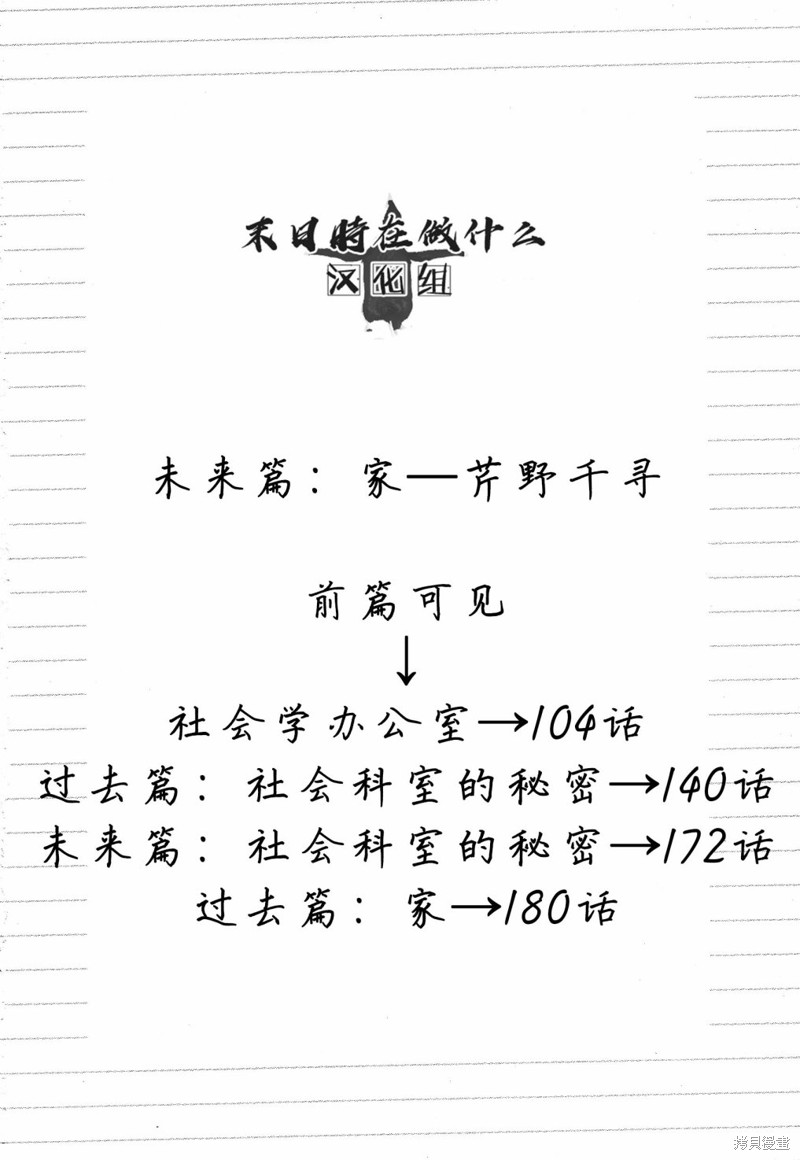 末日時在做什么
汉化组
未来篇：家—芹野千寻
前篇可见
↓
社会学办公室→104话
过去篇：社会科室的秘密→140话
未来篇：社会科室的秘密→172话
过去篇：家→180话
拷貝漫畫